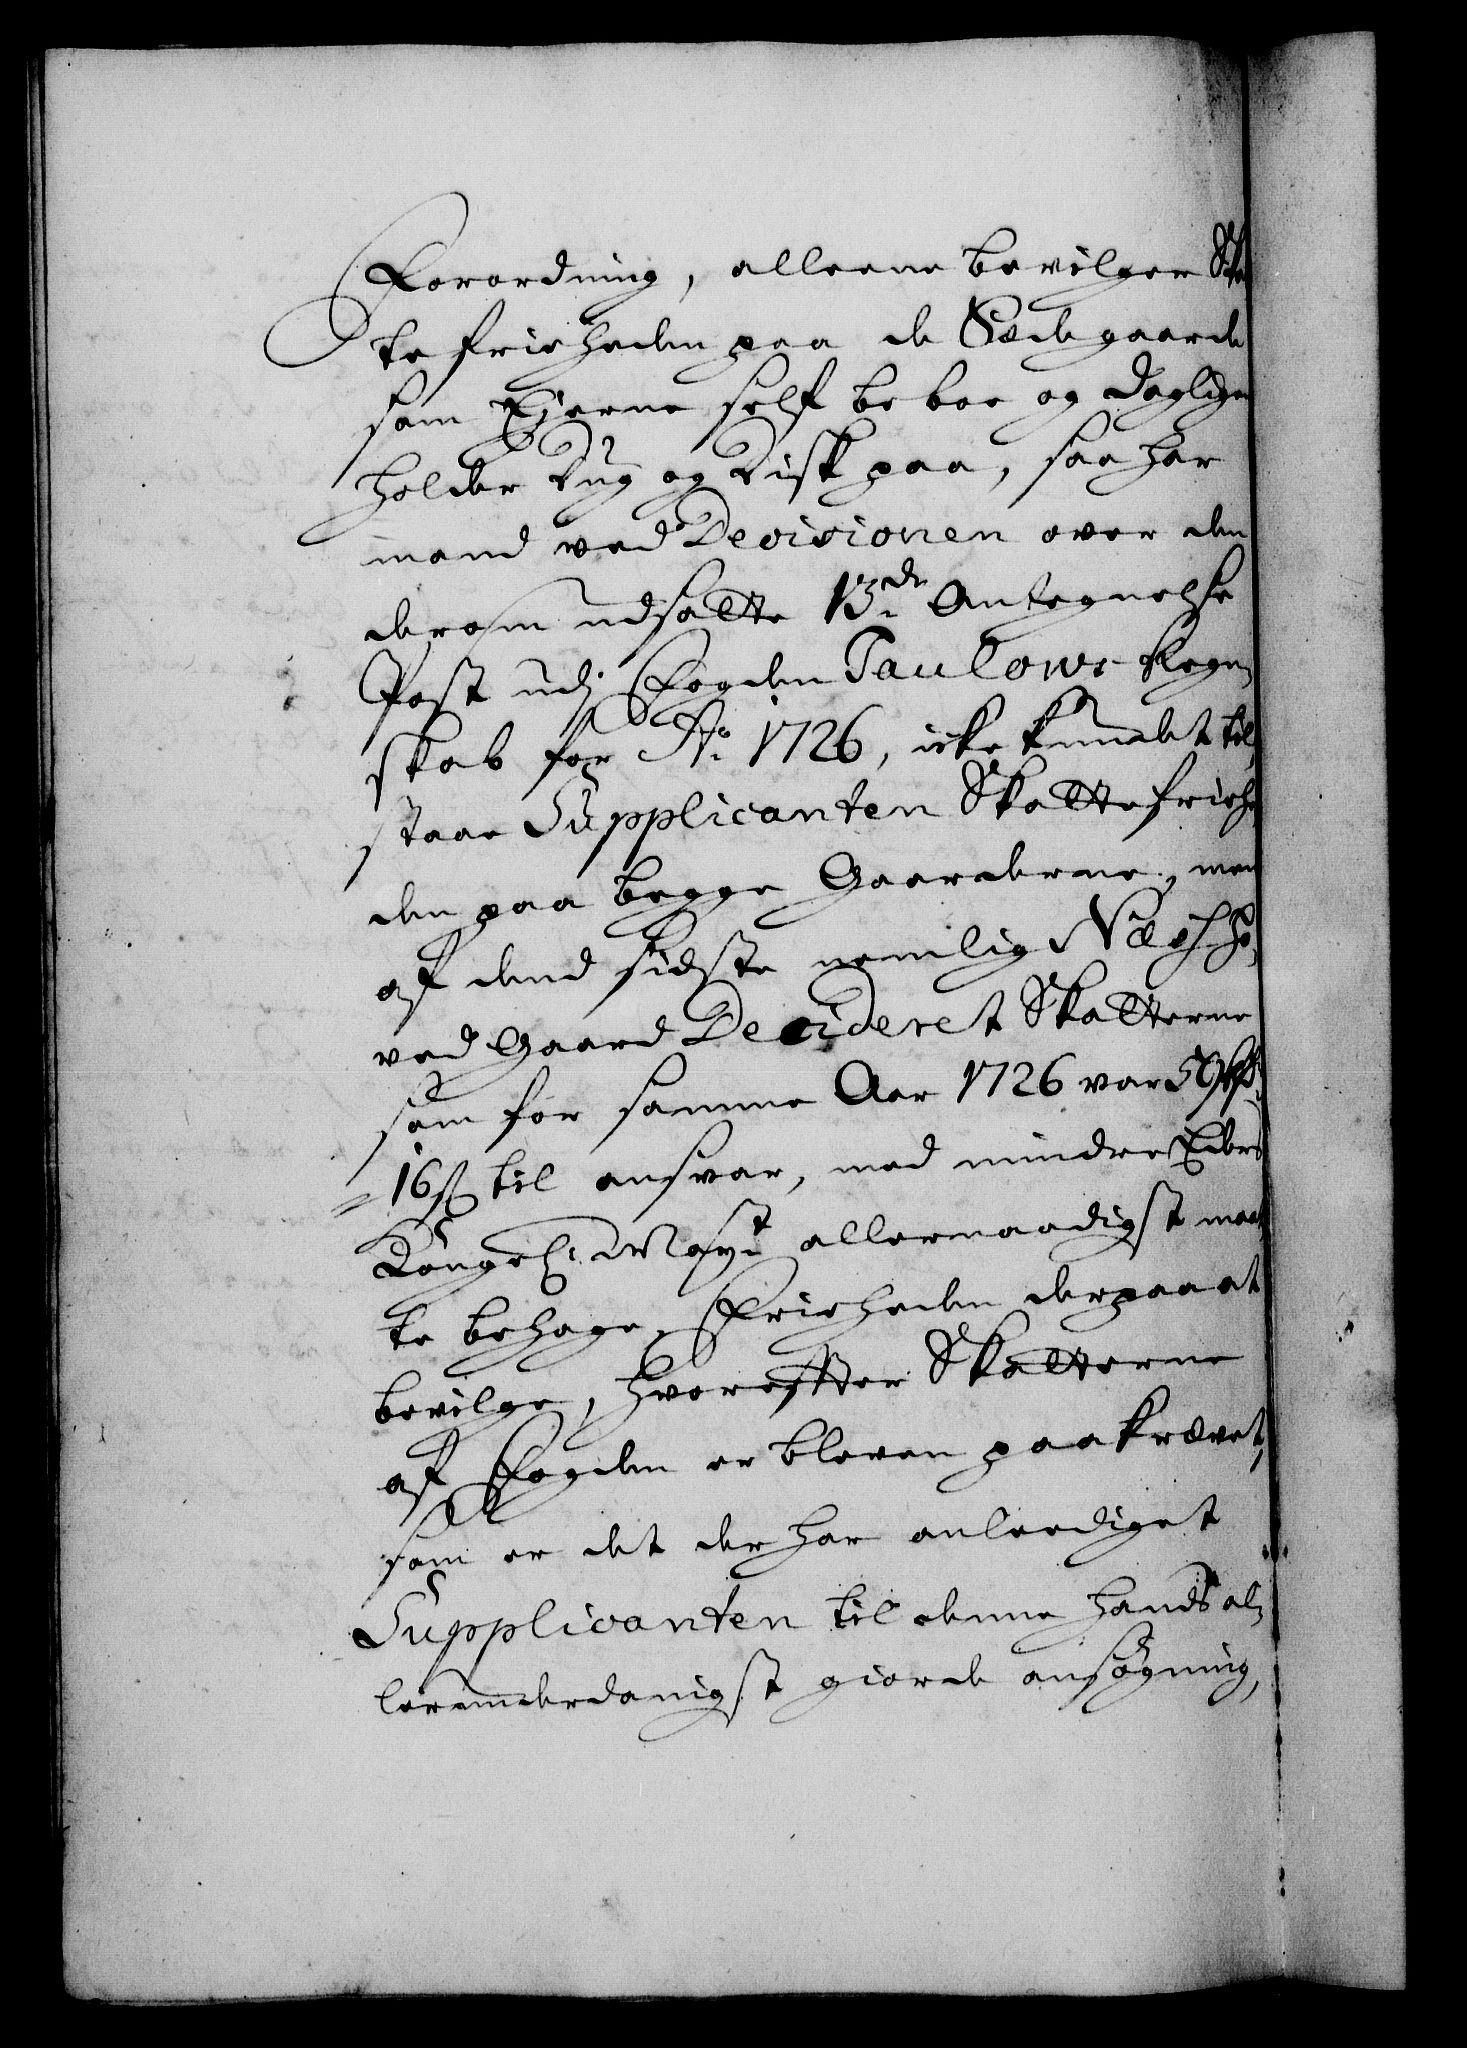 Forordning, alleene bevilger Ska
te friheden paa de Sædegaarde
som Ejerne self beboe og daglig
holder Dug og Disk paa, saa har
mand ved Decisionen over den
derom udsatte 13de Antegnelse
Post udj Fogden Paulows Regn
skab for Ao 1726, icke kundet til
staae Supplicanten Skattefriehe
den paa begge Gaarderne, men
af dend sidste nemlig Næs Ho
ved Gaard Decideret Skatterne
som for samme Aar 1726 var
16 s til ansvar, med mindre Eders
Kongel. Mayt allernaadigst maat
te behage, Frieheden derpaa at
bevilge, hvorefter Skatterne
af Fogden er bleven paakrævet,
som er det der har anleediget
Supplicanten til denne hands al
lerunderdanigst giorde ansøgning,